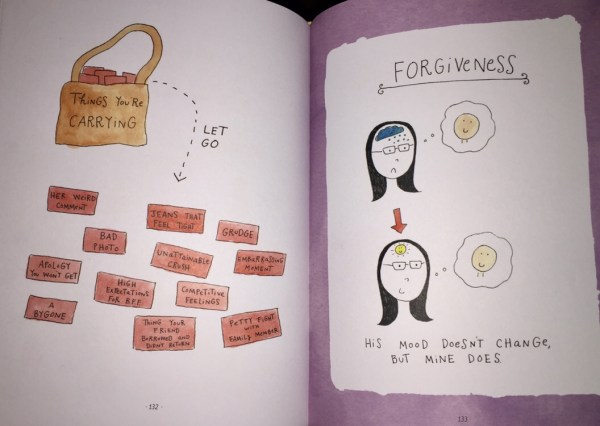 THINGS YOU'RE
CARRYING
LET
GO
HER WEIRD
COMMENT
JEANS THAT
FEEL TIGHT
GRUDGE
BAD
PHOTO
UNATTAINABLE
CRUSH
EMBARRASSING
MOMENT
APOLOGY
YOU WON'T GET
HIGH
EXPECTATIONS
FOR BFF
COMPETITIVE
FEELINGS
A
BYGONE
THING YOUR
FRIEND
BORROWED AND
DIDN'T RETURN
PETTY FIGHT
WITH
FAMILY MEMBER
· 132 ·
FORGIVENESS
HIS MOOD DOESN'T CHANGE,
BUT MINE DOES.
133